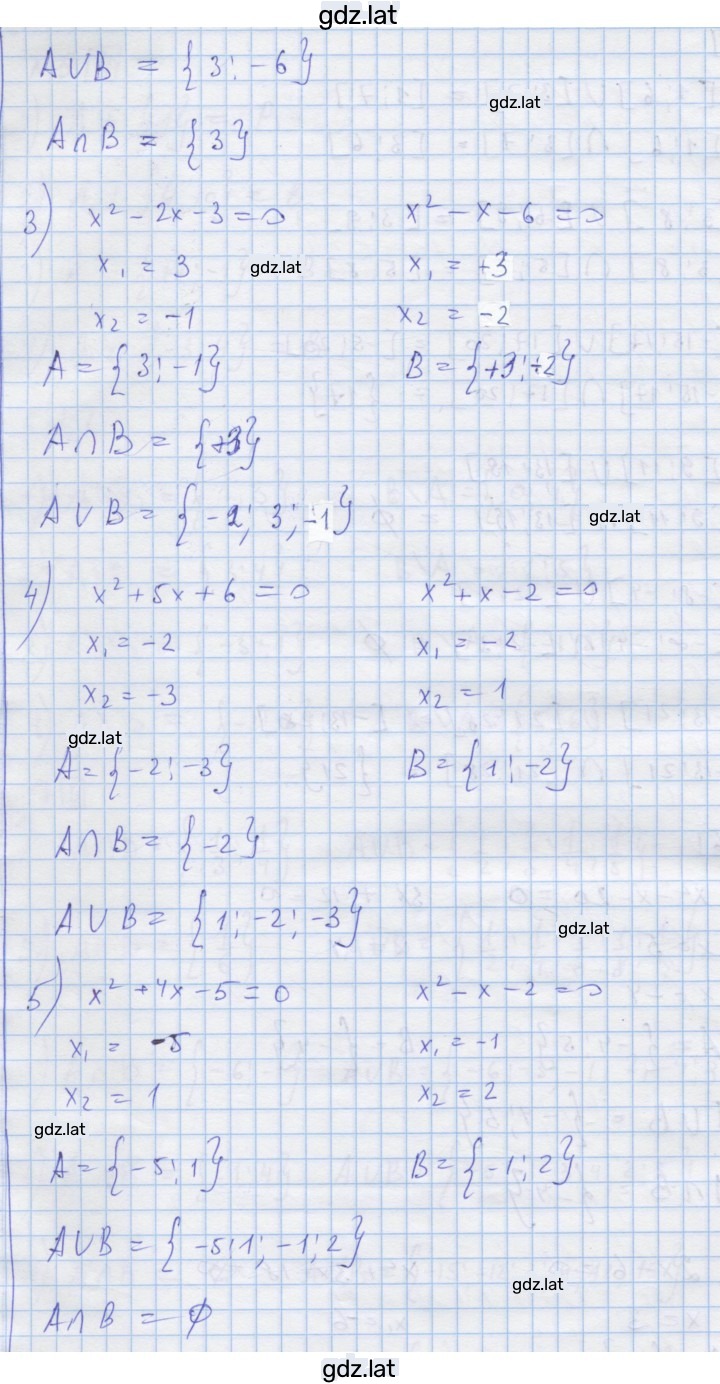 gdz.lat
A∪B = {3; -6}
gdz.lat
A∩B = {3}
3) x² - 2x - 3 = 0    x² - x - 6 = 0
x₁ = 3    gdz.lat    x₁ = +3
x₂ = -1    x₂ = -2
A = {3; -1}    B = {+3; -2}
A∩B = {+3}
A∪B = {-2; 3; -1}    gdz.lat
4) x² + 5x + 6 = 0    x² + x - 2 = 0
x₁ = -2    x₁ = -2
x₂ = -3    x₂ = 1
gdz.lat
A = {-2; -3}    B = {1; -2}
A∩B = {-2}
A∪B = {1; -2; -3}    gdz.lat
5) x² + 4x - 5 = 0    x² - x - 2 = 0
x₁ = -5    x₁ = -1
x₂ = 1    x₂ = 2
gdz.lat
A = {-5; 1}    B = {-1; 2}
A∪B = {-5; 1; -1; 2}
gdz.lat
A∩B = ∅
gdz.lat